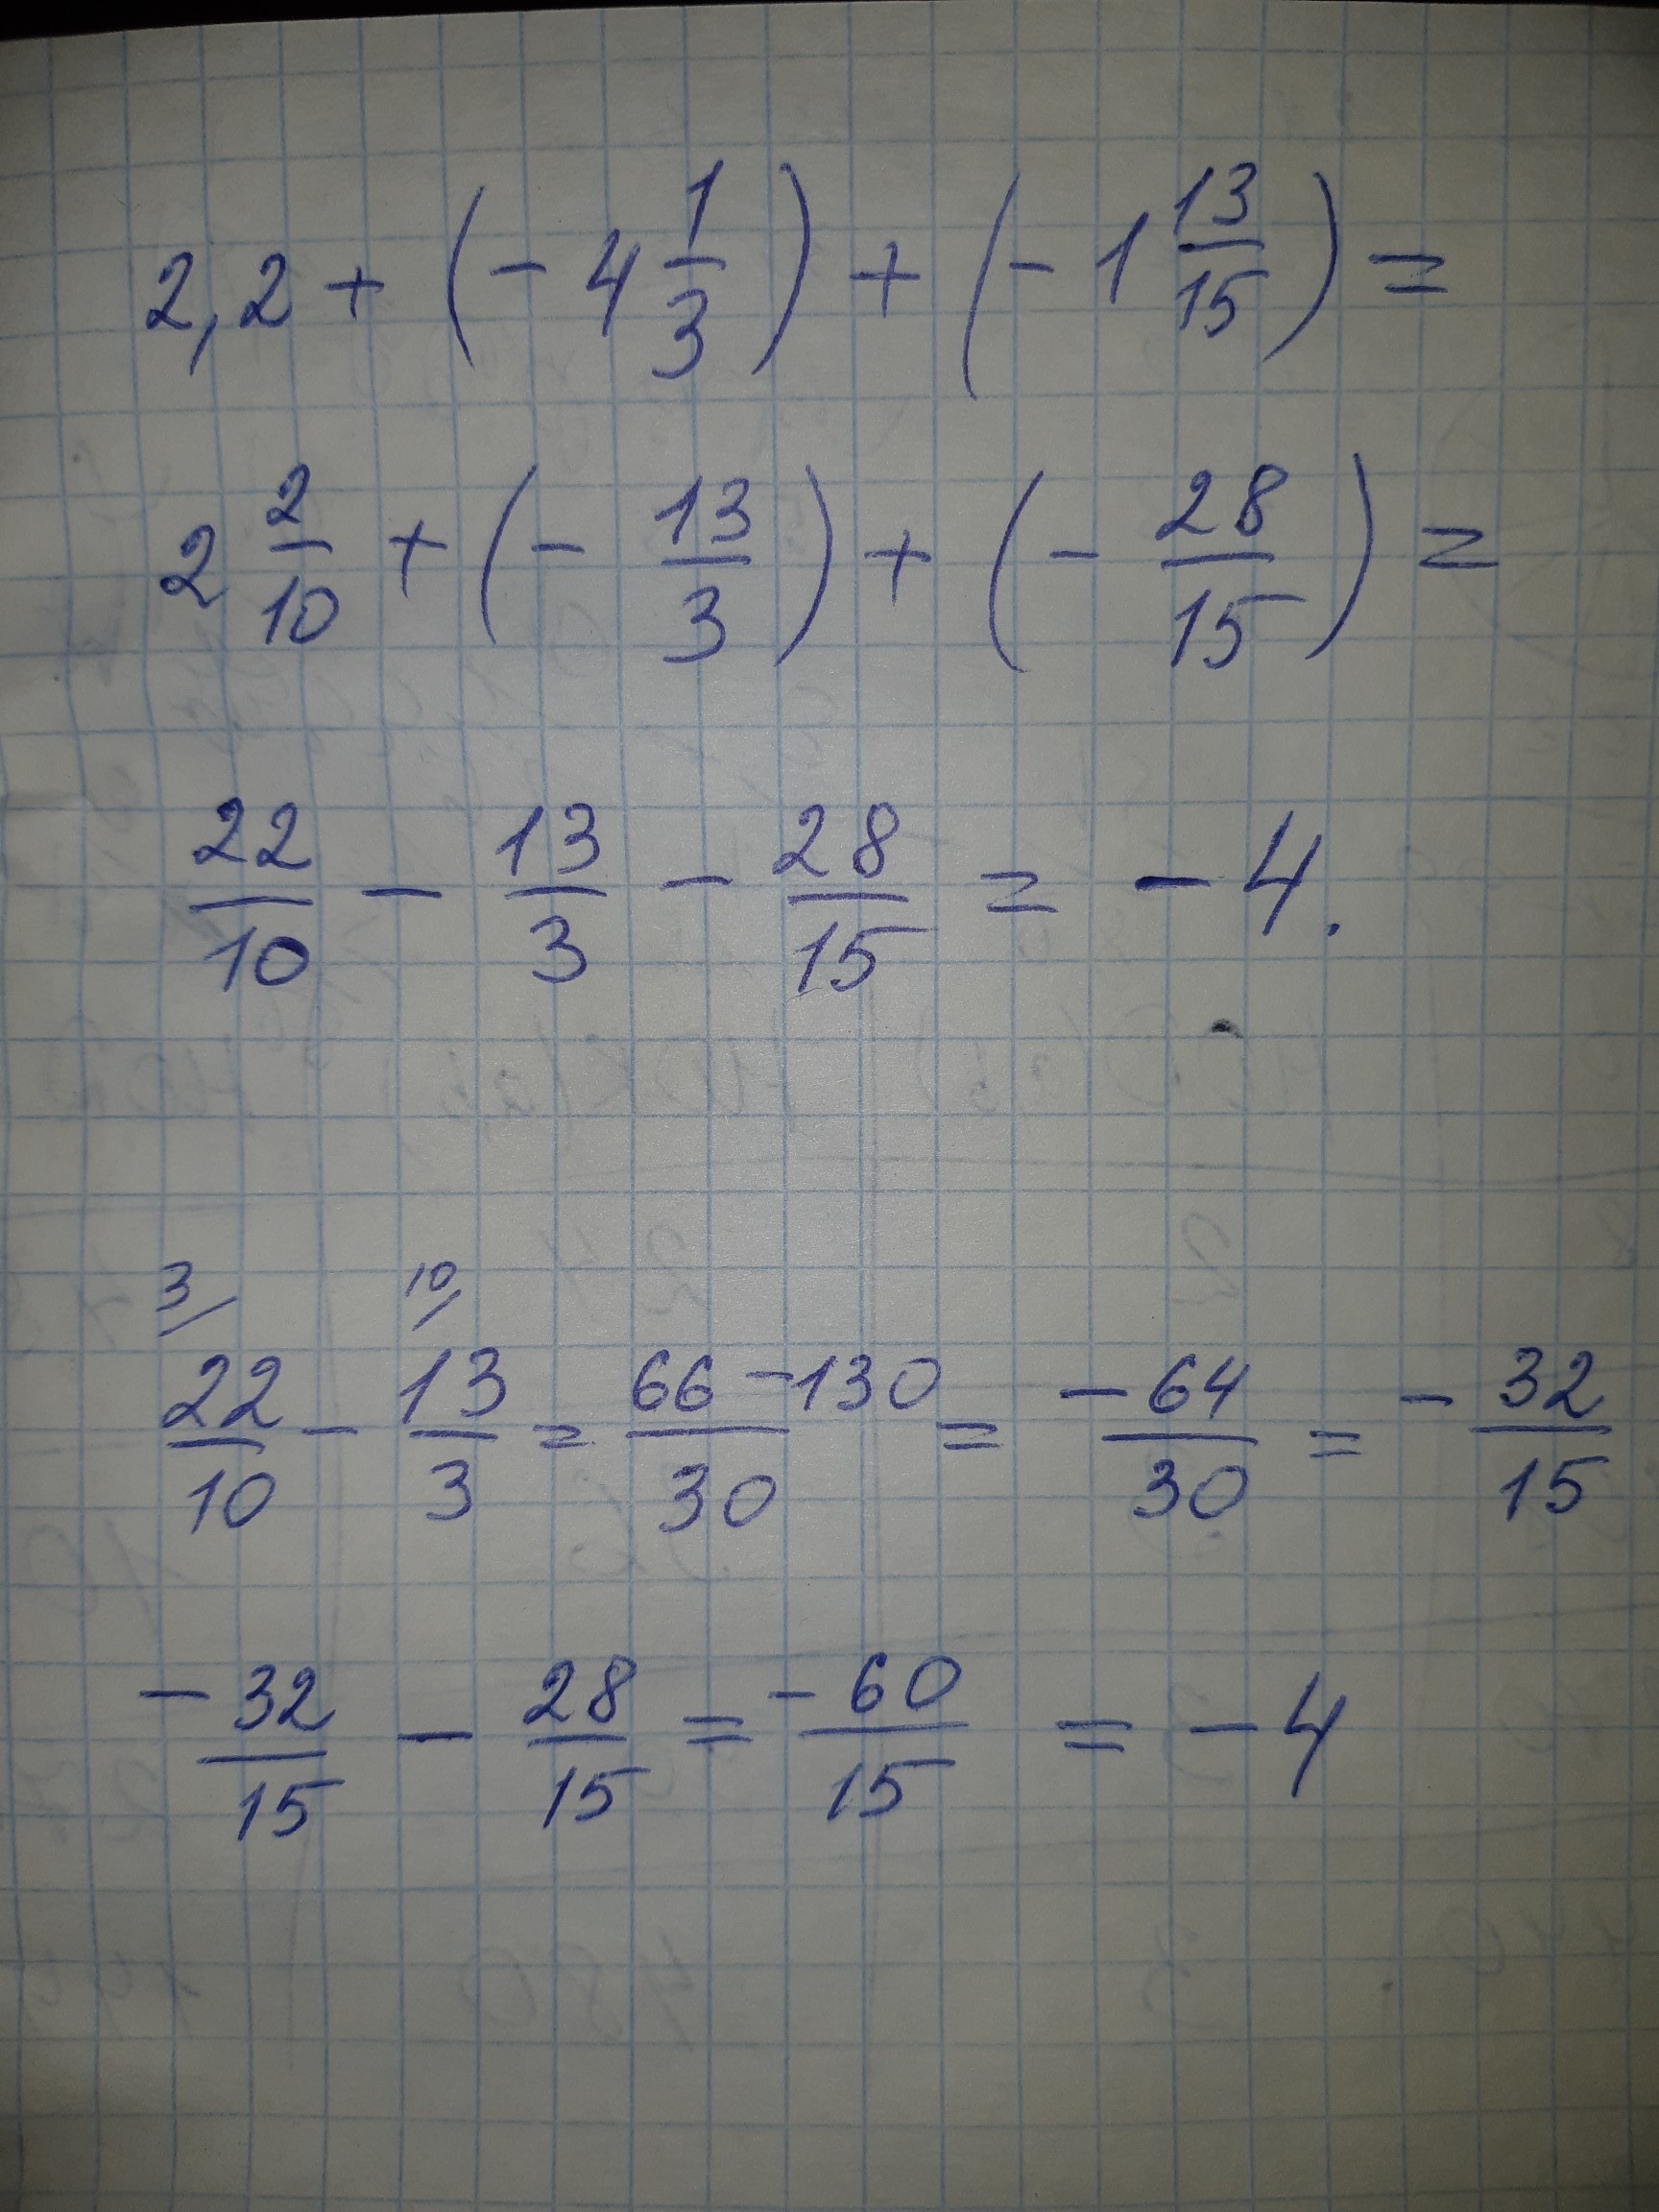 2,2 + (- 4 1/3) + (- 1 13/15) =
2 2/10 + (- 13/3) + (- 28/15) =
22/10 - 13/3 - 28/15 = - 4.
3/ 10/
22/10 - 13/3 = 66 - 130/30 = - 64/30 = - 32/15
- 32/15 - 28/15 = - 60/15 = - 4